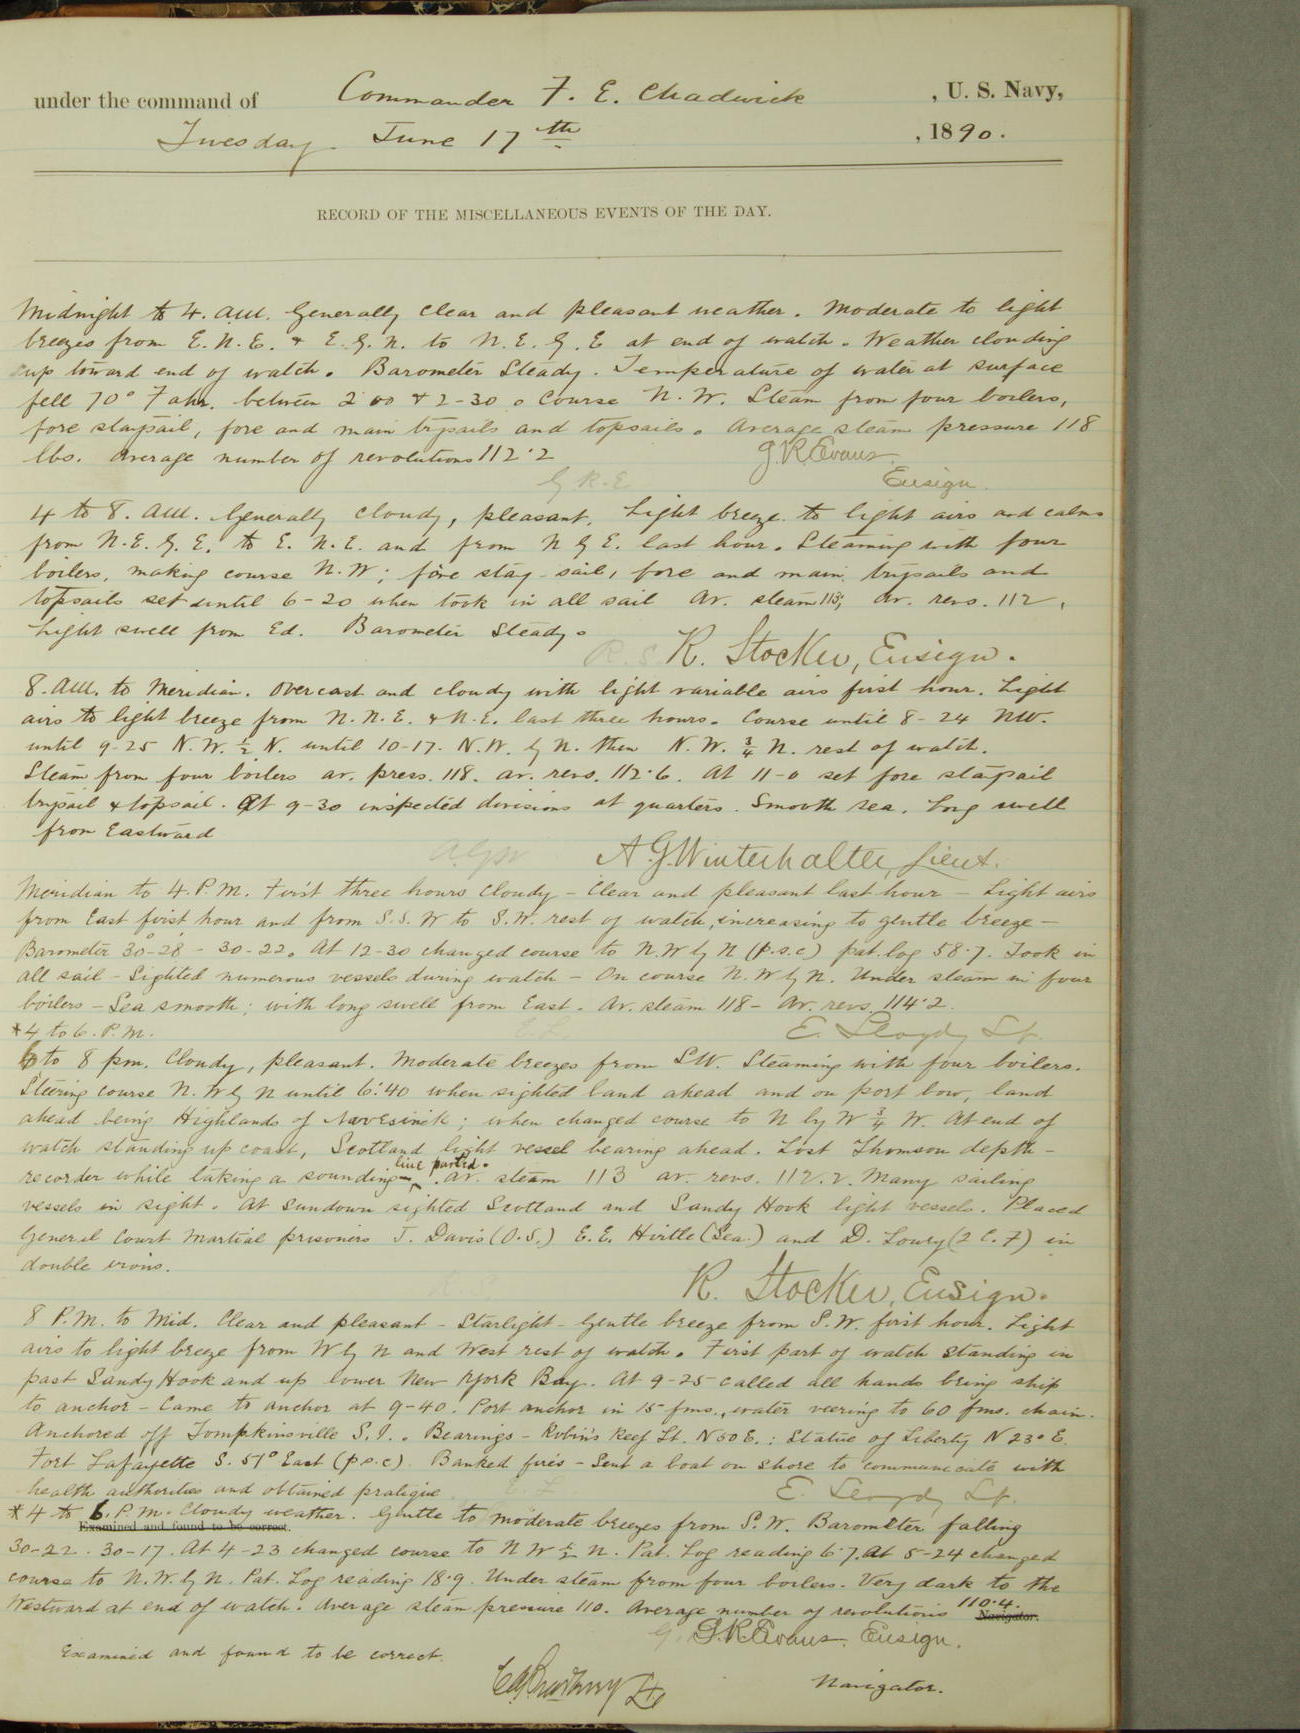 under the command of Commander F. E. Chadwick , U. S. Navy,
Tuesday June 17th , 1890.
RECORD OF THE MISCELLANEOUS EVENTS OF THE DAY.
Midnight to 4. A.M. Generally clear and pleasant weather. Moderate to light
breezes from E.N.E. & E.G.N. to N.E.G.E at end of watch. Weather clouding
up toward end of watch. Barometer Steady. Temperature of water at surface
fell 70° Fahr. between 2 00 & 2-30. Course N.W. Steam from four boilers,
fore staysail, fore and main trysails and topsails. Average steam pressure 118
lbs. Average number of revolutions 112.2 J.R.Evans
G.R.E Ensign.
4 to 8. A.M. Generally cloudy, pleasant. Light breeze to light airs and calms
from N.E.G.E. to E.N.E. and from N G E. last hour. Steaming with four
boilers, making course N.W; fore stay-sail, fore and main trysails and
topsails set until 6-20 when took in all sail Av. steam 113; av. revs. 112,
Light swell from Ed. Barometer Steady.
R.S. R. Stocker, Ensign.
8. A.M. to Meridian. Overcast and cloudy with light variable airs first hour. Light
airs to light breeze from N.N.E. & N.E. last three hours. Course until 8-24 NW.
until 9-25 N.W. ½ N. until 10-17. N.W. by N. then N.W. ¾ N. rest of watch.
Steam from four boilers av. press. 118. av. revs. 112.6. At 11-0 set fore staysail
trysail & topsail. At 9-30 inspected divisions at quarters. Smooth sea. Long swell
from Eastward
A.G.W A.G.Winterhalter, Lieut.
Meridian to 4. P.M. First three hours cloudy - Clear and pleasant last hour - Light airs
from East first hour and from S.S.W to S.W. rest of watch, increasing to gentle breeze -
Barometer 30-28 - 30-22. At 12-30 changed course to N.W by N (p.s.c) pat. log 58.7. Took in
all sail - Sighted numerous vessels during watch - On course N.W by N. Under steam in four
boilers - Sea smooth; with long swell from East. Av. steam 118 - Av. revs. 114.2.
*4 to 6. P.M. E. Lloyd Lt.
6 to 8 pm. Cloudy, pleasant. Moderate breezes from SW. Steaming with four boilers.
Steering course N.W by N until 6:40 when sighted land ahead and on port bow, land
ahead being Highlands of Navesinick; when changed course to N by W ¾ W. At end of
watch standing up coast, Scotland light vessel bearing ahead. Lost Thomson depth-
recorder while taking a sounding - line parted. Av. steam 113 av. revs. 112.2. Many sailing
vessels in sight. At Sundown sighted Scotland and Sandy Hook light vessels. Placed
General Court Martial prisoners J. Davis (O.S.) E.E. Hirtle (Sea.) and D. Lowry (2 C.F) in
double irons.
R. Stocker, Ensign.
8 P.M. to Mid. Clear and pleasant - Starlight - Gentle breeze from S.W. first hour. Light
airs to light breeze from W by N and West rest of watch. First part of watch standing in
past Sandy Hook and up lower New York Bay. At 9-25 called all hands bring ship
to anchor - Came to anchor at 9-40. Port anchor in 15 fms., water veering to 60 fms. chain.
Anchored off Tompkinsville S.I. Bearings - Robin's Reef Lt. N50E.: Statue of Liberty N 23° E.
Fort Lafayette S. 51° East (p.s.c) Banked fires - Sent a boat on shore to communicate with
health authorities and obtained pratique. E. Lloyd Lt.
*4 to 6. P.M. Cloudy weather. Gentle to moderate breezes from S.W. Barometer falling
Examined and found to be correct.
30-22. 30-17. At 4-23 changed course to N W ½ N. Pat. Log reading 6.7. At 5-24 changed
course to N.W. by N. Pat. Log reading 18.9. Under steam from four boilers. Very dark to the
Westward at end of watch. Average steam pressure 110. Average number of revolutions 110.4.
Navigator.
J.R.Evans. Ensign.
Examined and found to be correct.
Navigator.